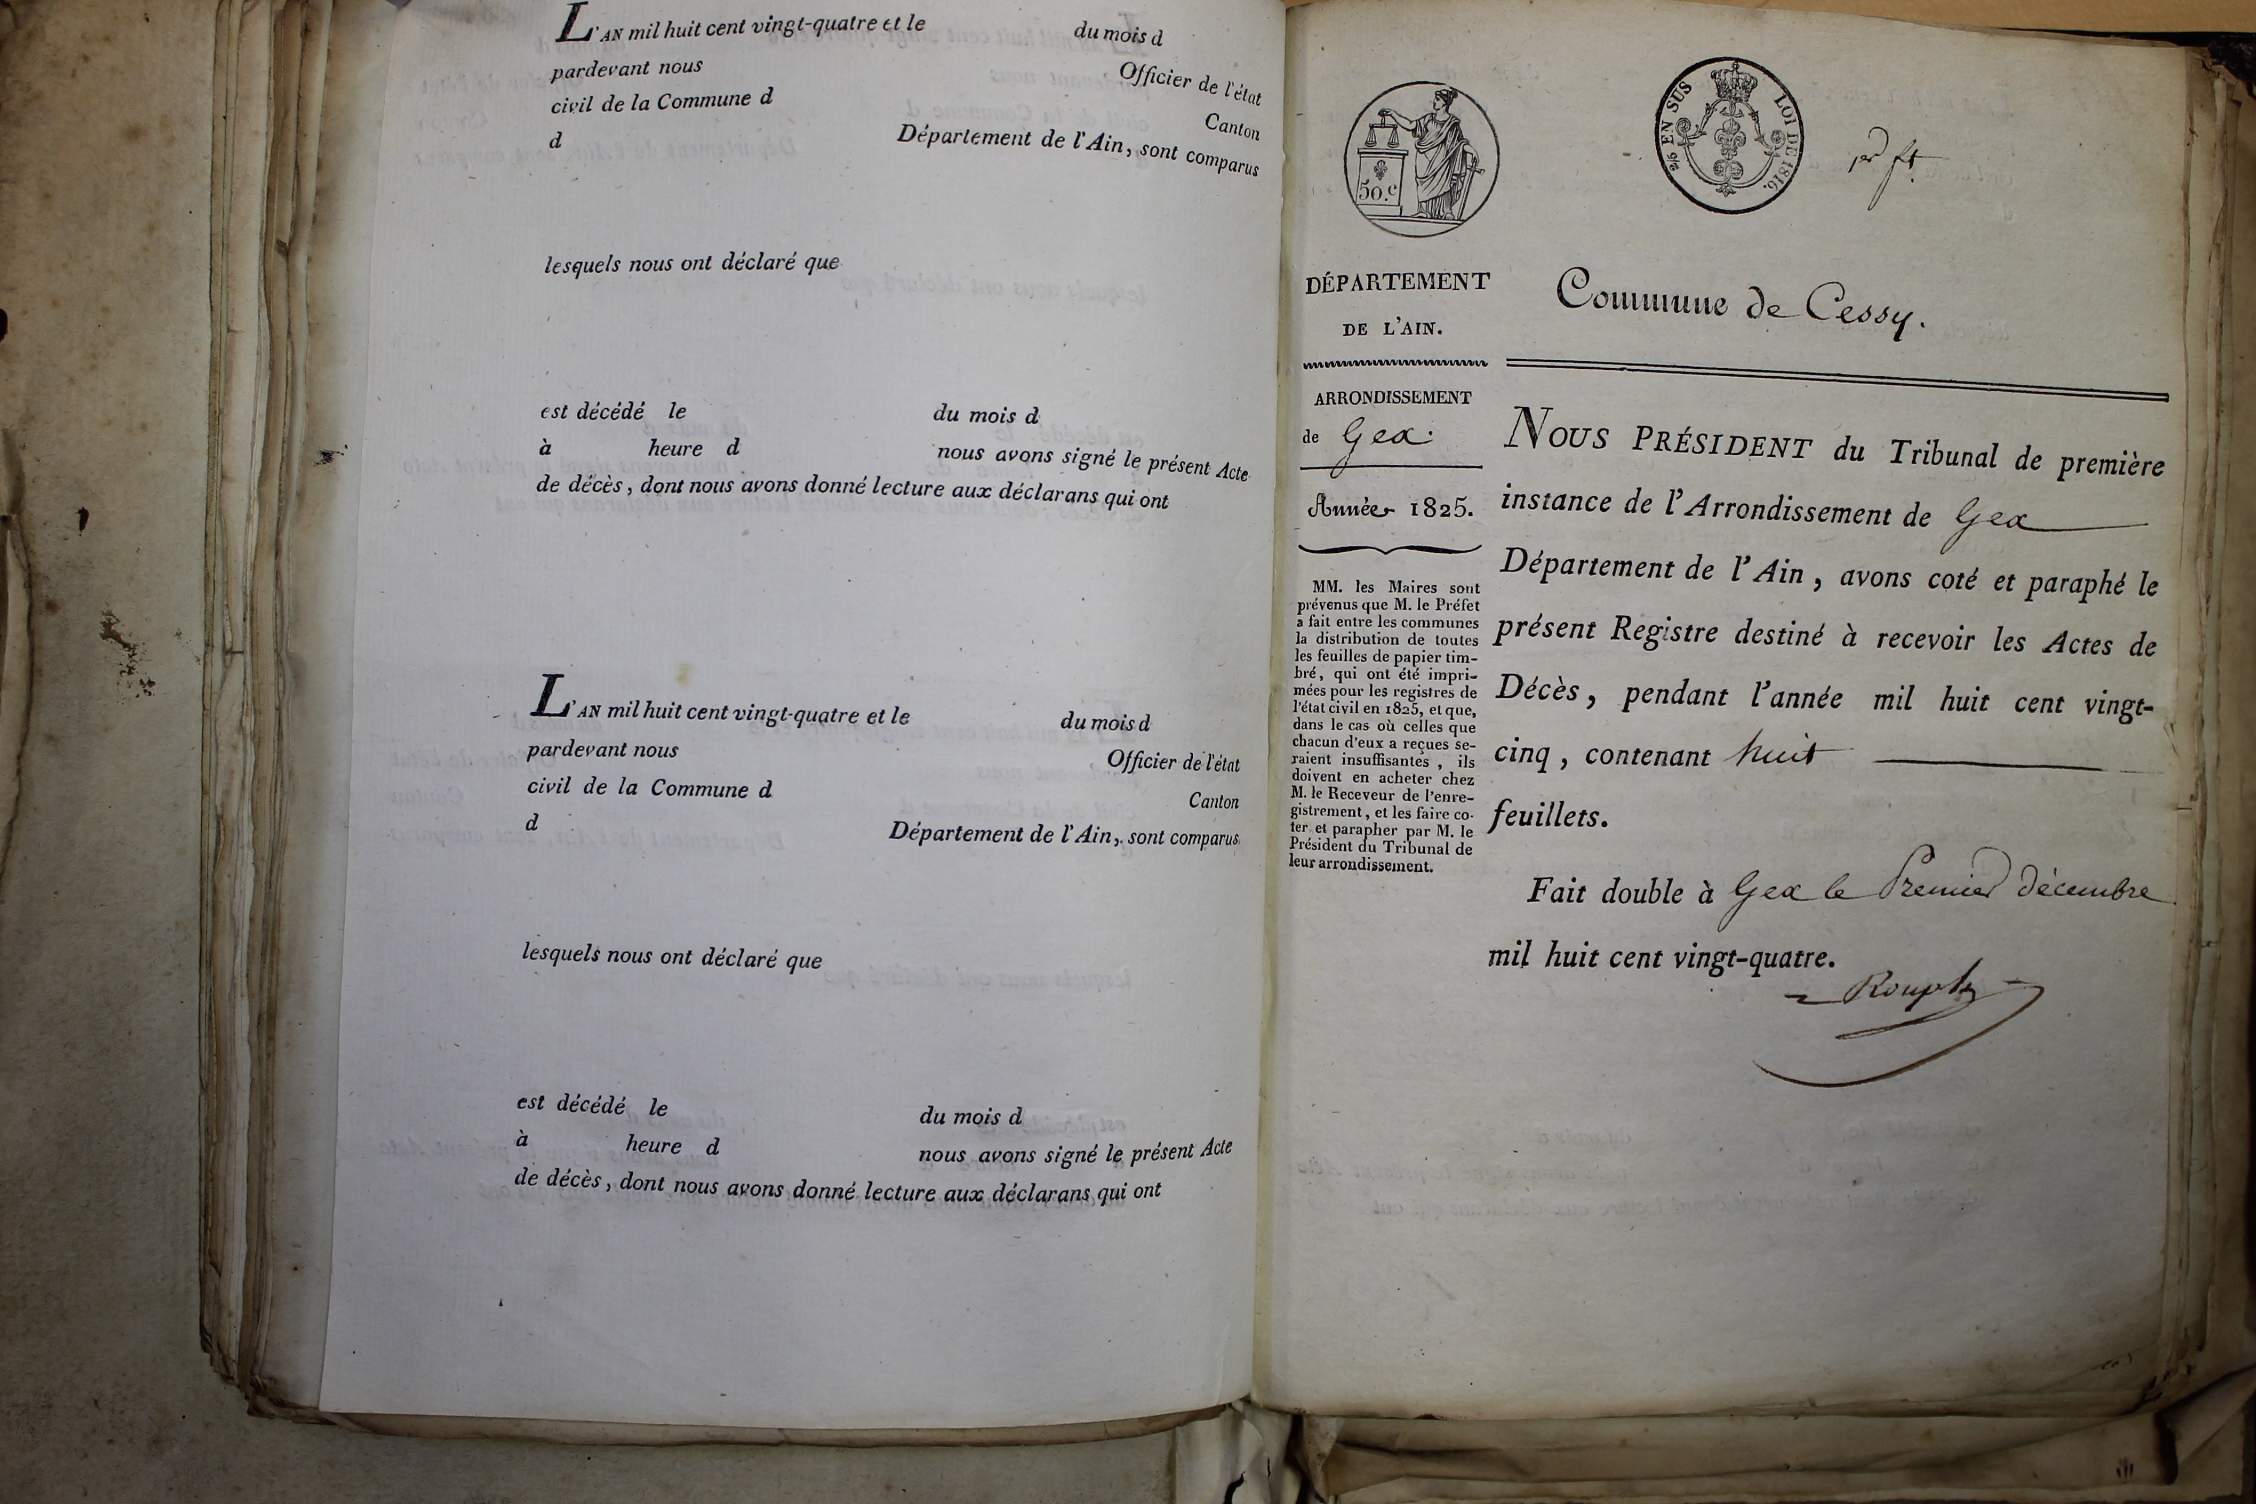 L'AN mil huit cent vingt-quatre et le du mois d
pardevant nous Officier de l'état
civil de la Commune d Canton
d Département de l'Ain, sont comparus
lesquels nous ont déclaré que
est décédé le du mois d
à heure d nous avons signé le présent Acte
de décès, dont nous avons donné lecture aux déclarans qui ont
L'AN mil huit cent vingt-quatre et le du mois d
pardevant nous Officier de l'état
civil de la Commune d Canton
d Département de l'Ain, sont comparus
lesquels nous ont déclaré que
est décédé le du mois d
à heure d nous avons signé le présent Acte
de décès, dont nous avons donné lecture aux déclarans qui ont
50.c
EN SUS LOI DE 1816.
DÉPARTEMENT
DE L'AIN.
ARRONDISSEMENT
de Gex.
Année 1825.
MM. les Maires sont
prévenus que M. le Préfet
a fait entre les communes
la distribution de toutes
les feuilles de papier tim-
bré, qui ont été impri-
mées pour les registres de
l'état civil en 1825, et que,
dans le cas où celles que
chacun d'eux a reçues se-
raient insuffisantes, ils
doivent en acheter chez
M. le Receveur de l'enre-
gistrement, et les faire co-
ter et parapher par M. le
Président du Tribunal de
leur arrondissement.
Commune de Cessy.
NOUS PRÉSIDENT du Tribunal de première
instance de l'Arrondissement de Gex
Département de l'Ain, avons coté et paraphé le
présent Registre destiné à recevoir les Actes de
Décès, pendant l'année mil huit cent vingt-
cinq, contenant huit
feuillets.
Fait double à Gex le Premier décembre
mil huit cent vingt-quatre.